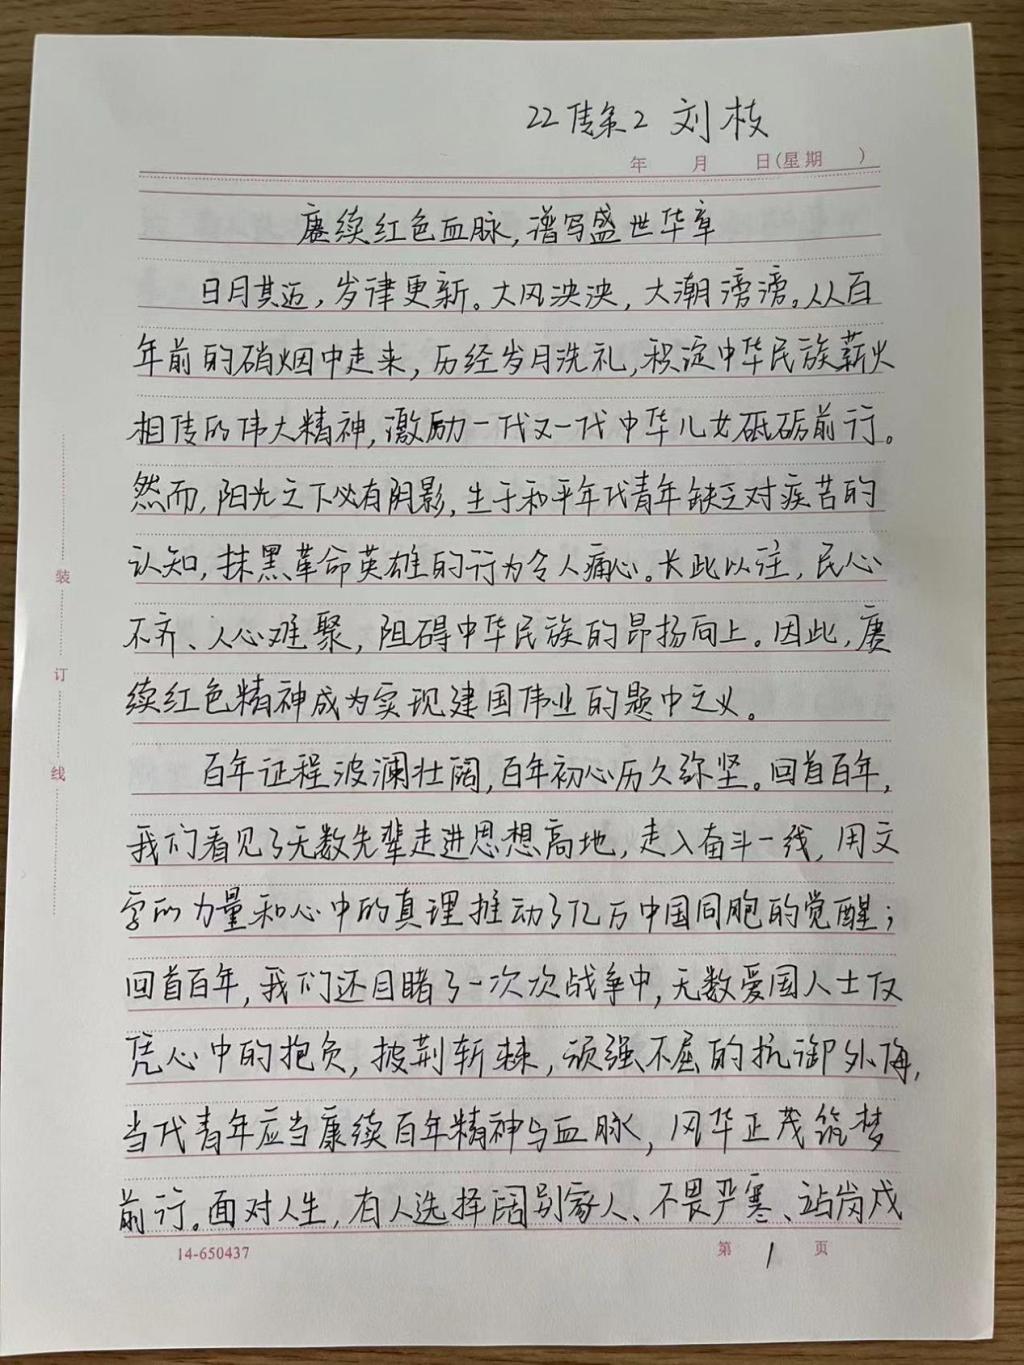 22传余2 刘枝
年 月 日(星期 )
赓续红色血脉,谱写盛世华章
日月其迈,岁律更新。大风泱泱,大潮滂滂。从百
年前的硝烟中走来,历经岁月洗礼,积淀中华民族薪火
相传的伟大精神,激励一代又一代中华儿女砥砺前行。
然而,阳光之下必有阴影,生于和平年代青年缺乏对疾苦的
认知,抹黑革命英雄的行为令人痛心。长此以往,民心
不齐、人心难聚,阻碍中华民族的昂扬向上。因此,赓
续红色精神成为实现建国伟业的题中之义。
百年征程波澜壮阔,百年初心历久弥坚。回首百年,
我们看见了无数先辈走进思想高地,走入奋斗一线,用文
字的力量和心中的真理推动了亿万中国同胞的觉醒;
回首百年,我们还目睹了一次次战争中,无数爱国人士仅
凭心中的抱负,披荆斩棘,顽强不屈的抗御外侮,
当代青年应当赓续百年精神与血脉,风华正茂筑梦
前行。面对人生,有人选择阔别家人、不畏严寒、站岗戍
装
订
线
14-650437
第 1 页